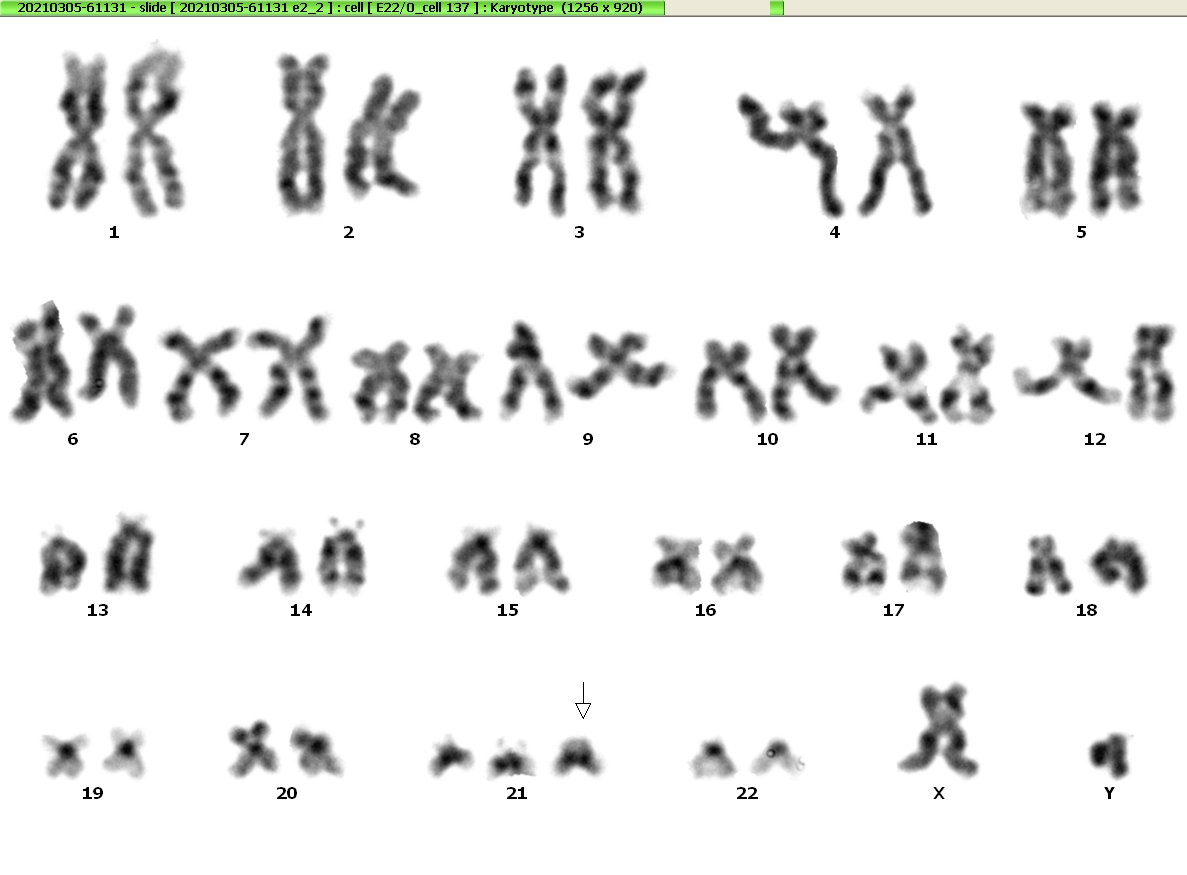 20210305-61131 - slide [ 20210305-61131 e2_2 ] : cell [ E22/0_cell 137 ] : Karyotype (1256 x 920)
1 2 3 4 5
6 7 8 9 10 11 12
13 14 15 16 17 18
19 20 21 22 X Y